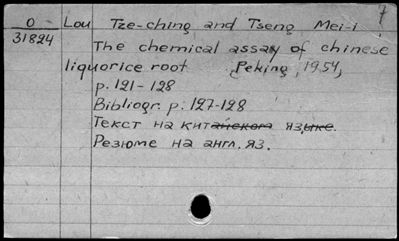 О Lou Tze-ching and Tseng Mei-i
31824 The chemical assay of chinese
liquorice root Peking, 1954,
p. 121-128
Bibliogr. p. 127-128
Текст на китайском языке.
Резюме на англ. яз.